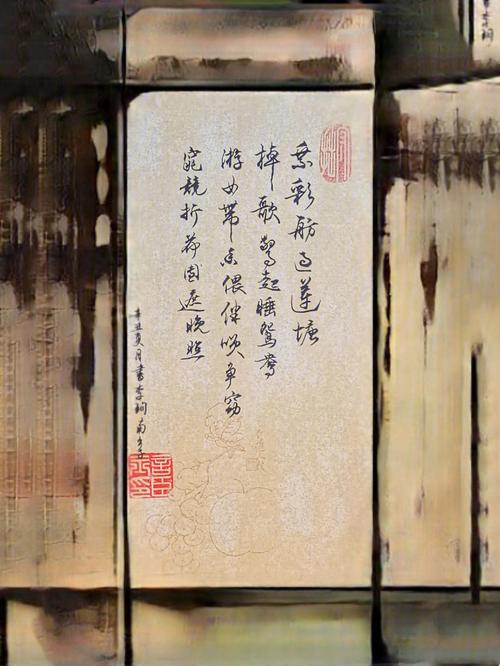 乘彩舫过蓮塘
棹歌驚起睡鴛鴦
游女帶香偎伴笑争窈
窕競折荷团遮晚照
辛丑夏月書李珣南乡子